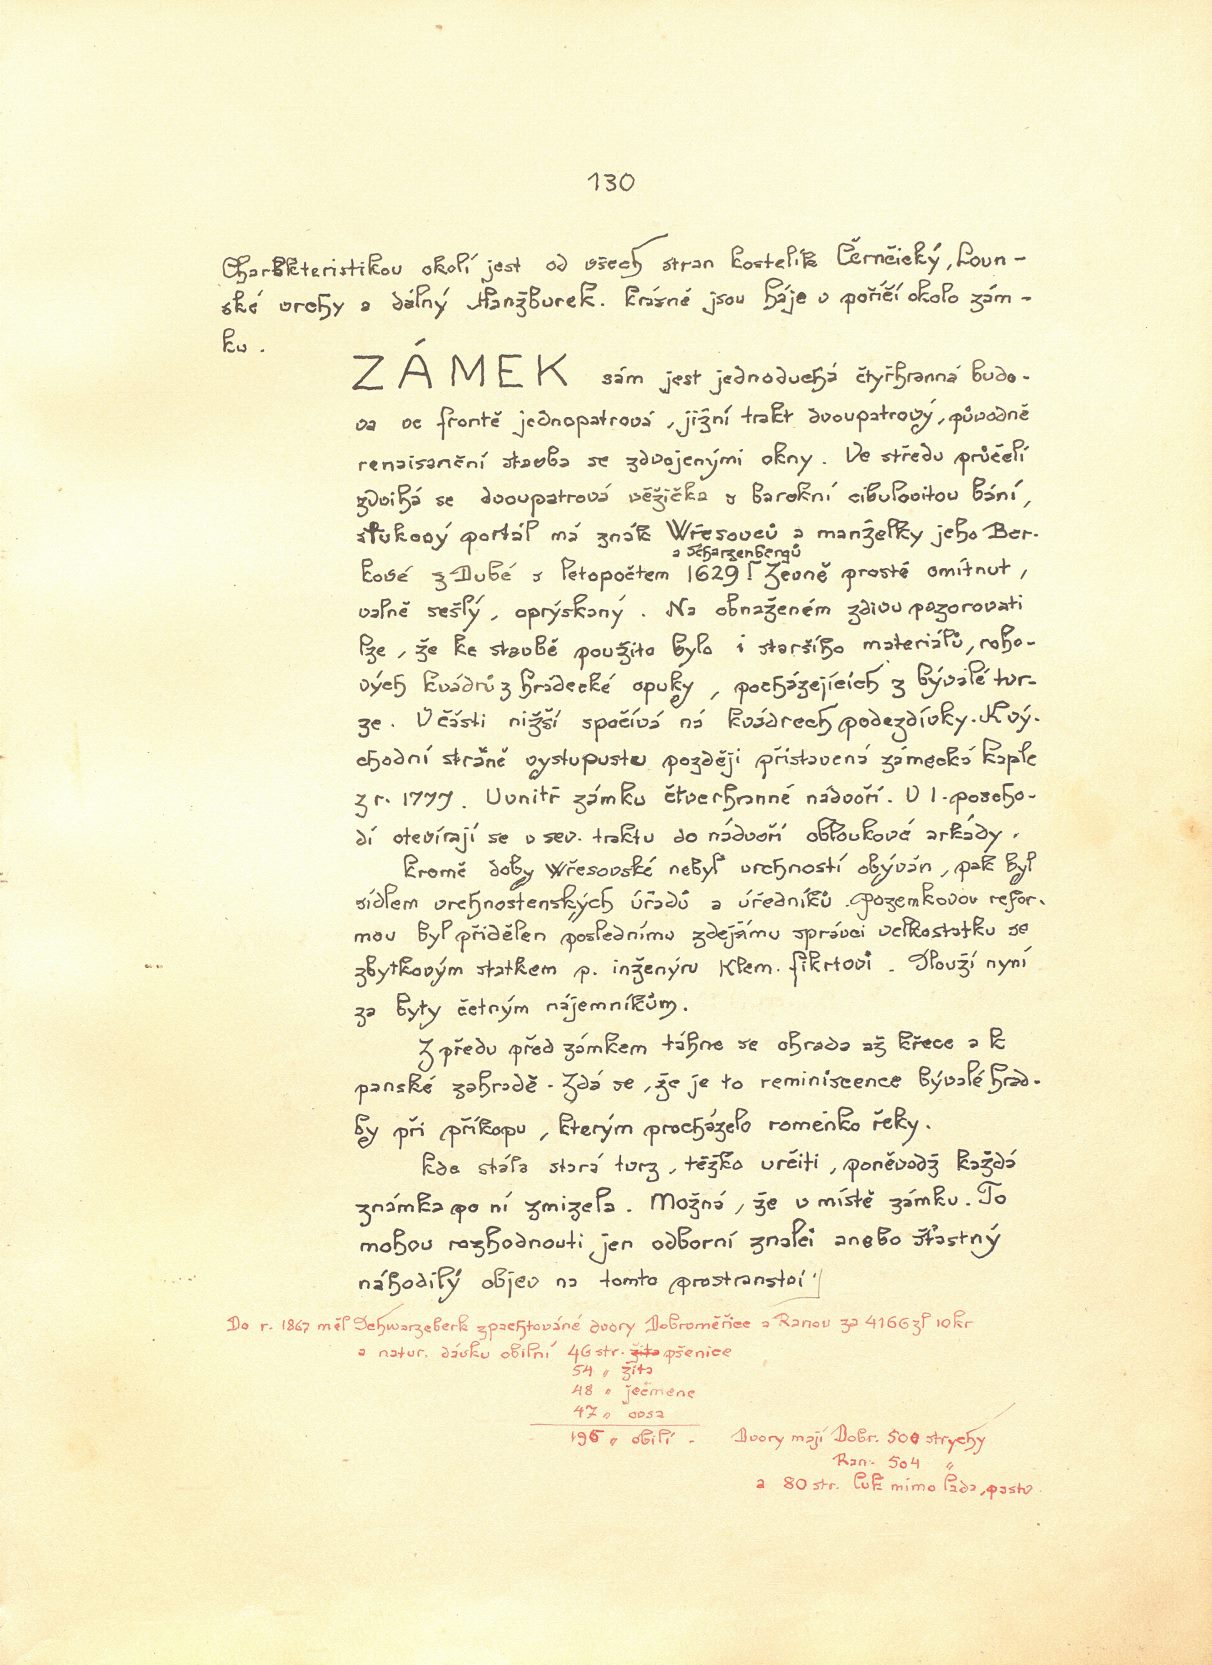 130
Charakteristikou okolí jest od všech stran kostelík Černčický, Loun-
ské vrchy a dálný Hanžburek. Krásné jsou háje v poříčí okolo zám-
ku.
ZÁMEK sám jest jednoduchá čtyřhranná budo-
va ve frontě jednopatrová, jižní trakt dvoupatrový, původně
renaisanční stavba se zdvojenými okny. Ve středu průčelí
zdvihá se dvoupatrová věžička s barokní cibulovitou bání,
štukový portál má znak Wřesovců a manželky jeho Ber-
a Scharzenbergů
kové z Dubé s letopočtem 1629! Zevně prostě omítnut,
valně sešlý, oprýskaný. Na obnaženém zdivu pozorovati
lze, že ke stavbě použito bylo i staršího materiálů, roho-
vých kvádrů z hrádecké opuky, pocházejících z bývalé tvr-
ze. V části nižší spočívá na kvádrech podezdívky. K vý-
chodní straně vystupuste později přistavená zámecká kaple
z r. 1777. Uvnitř zámku čtverhranné nádvoří. V I. poscho-
dí otevírají se v sev. traktu do nádvoří obloukové arkády.
Kromě doby Wřesovské nebyl vrchností obýván, pak byl
sídlem vrchnostenských úřadů a úředníků. Pozemkovou refor-
mou byl přidělen poslednímu zdejšímu správci velkostatku se
zbytkovým statkem p. inženýru Klem. Fikrtovi. Slouží nyní
za byty četným nájemníkům.
Z předu před zámkem táhne se ohrada až k řece a k
panské zahradě. Zdá se, že je to reminiscence bývalé hrad-
by při příkopu, kterým procházelo raménko řeky.
Kde stála stará tvrz, těžko určiti, poněvadž každá
známka po ní zmizela. Možná, že v místě zámku. To
mohou rozhodnouti jen odborní znalci anebo šťastný
náhodilý objev na tomto prostranství.
Do r. 1867 měl Schwarzeberk zpachtováné dvory Dobroměřice a Ranou za 4166 zl 10 kr
a natur. dávku obilní 46 str. žita pšenice
54 " žita
48 " ječmene
47 " ovsa
195 " obilí. Dvory mají Dobr. 500 strychy
Ran. 504 "
a 80 str. luk mimo lada, pastv.